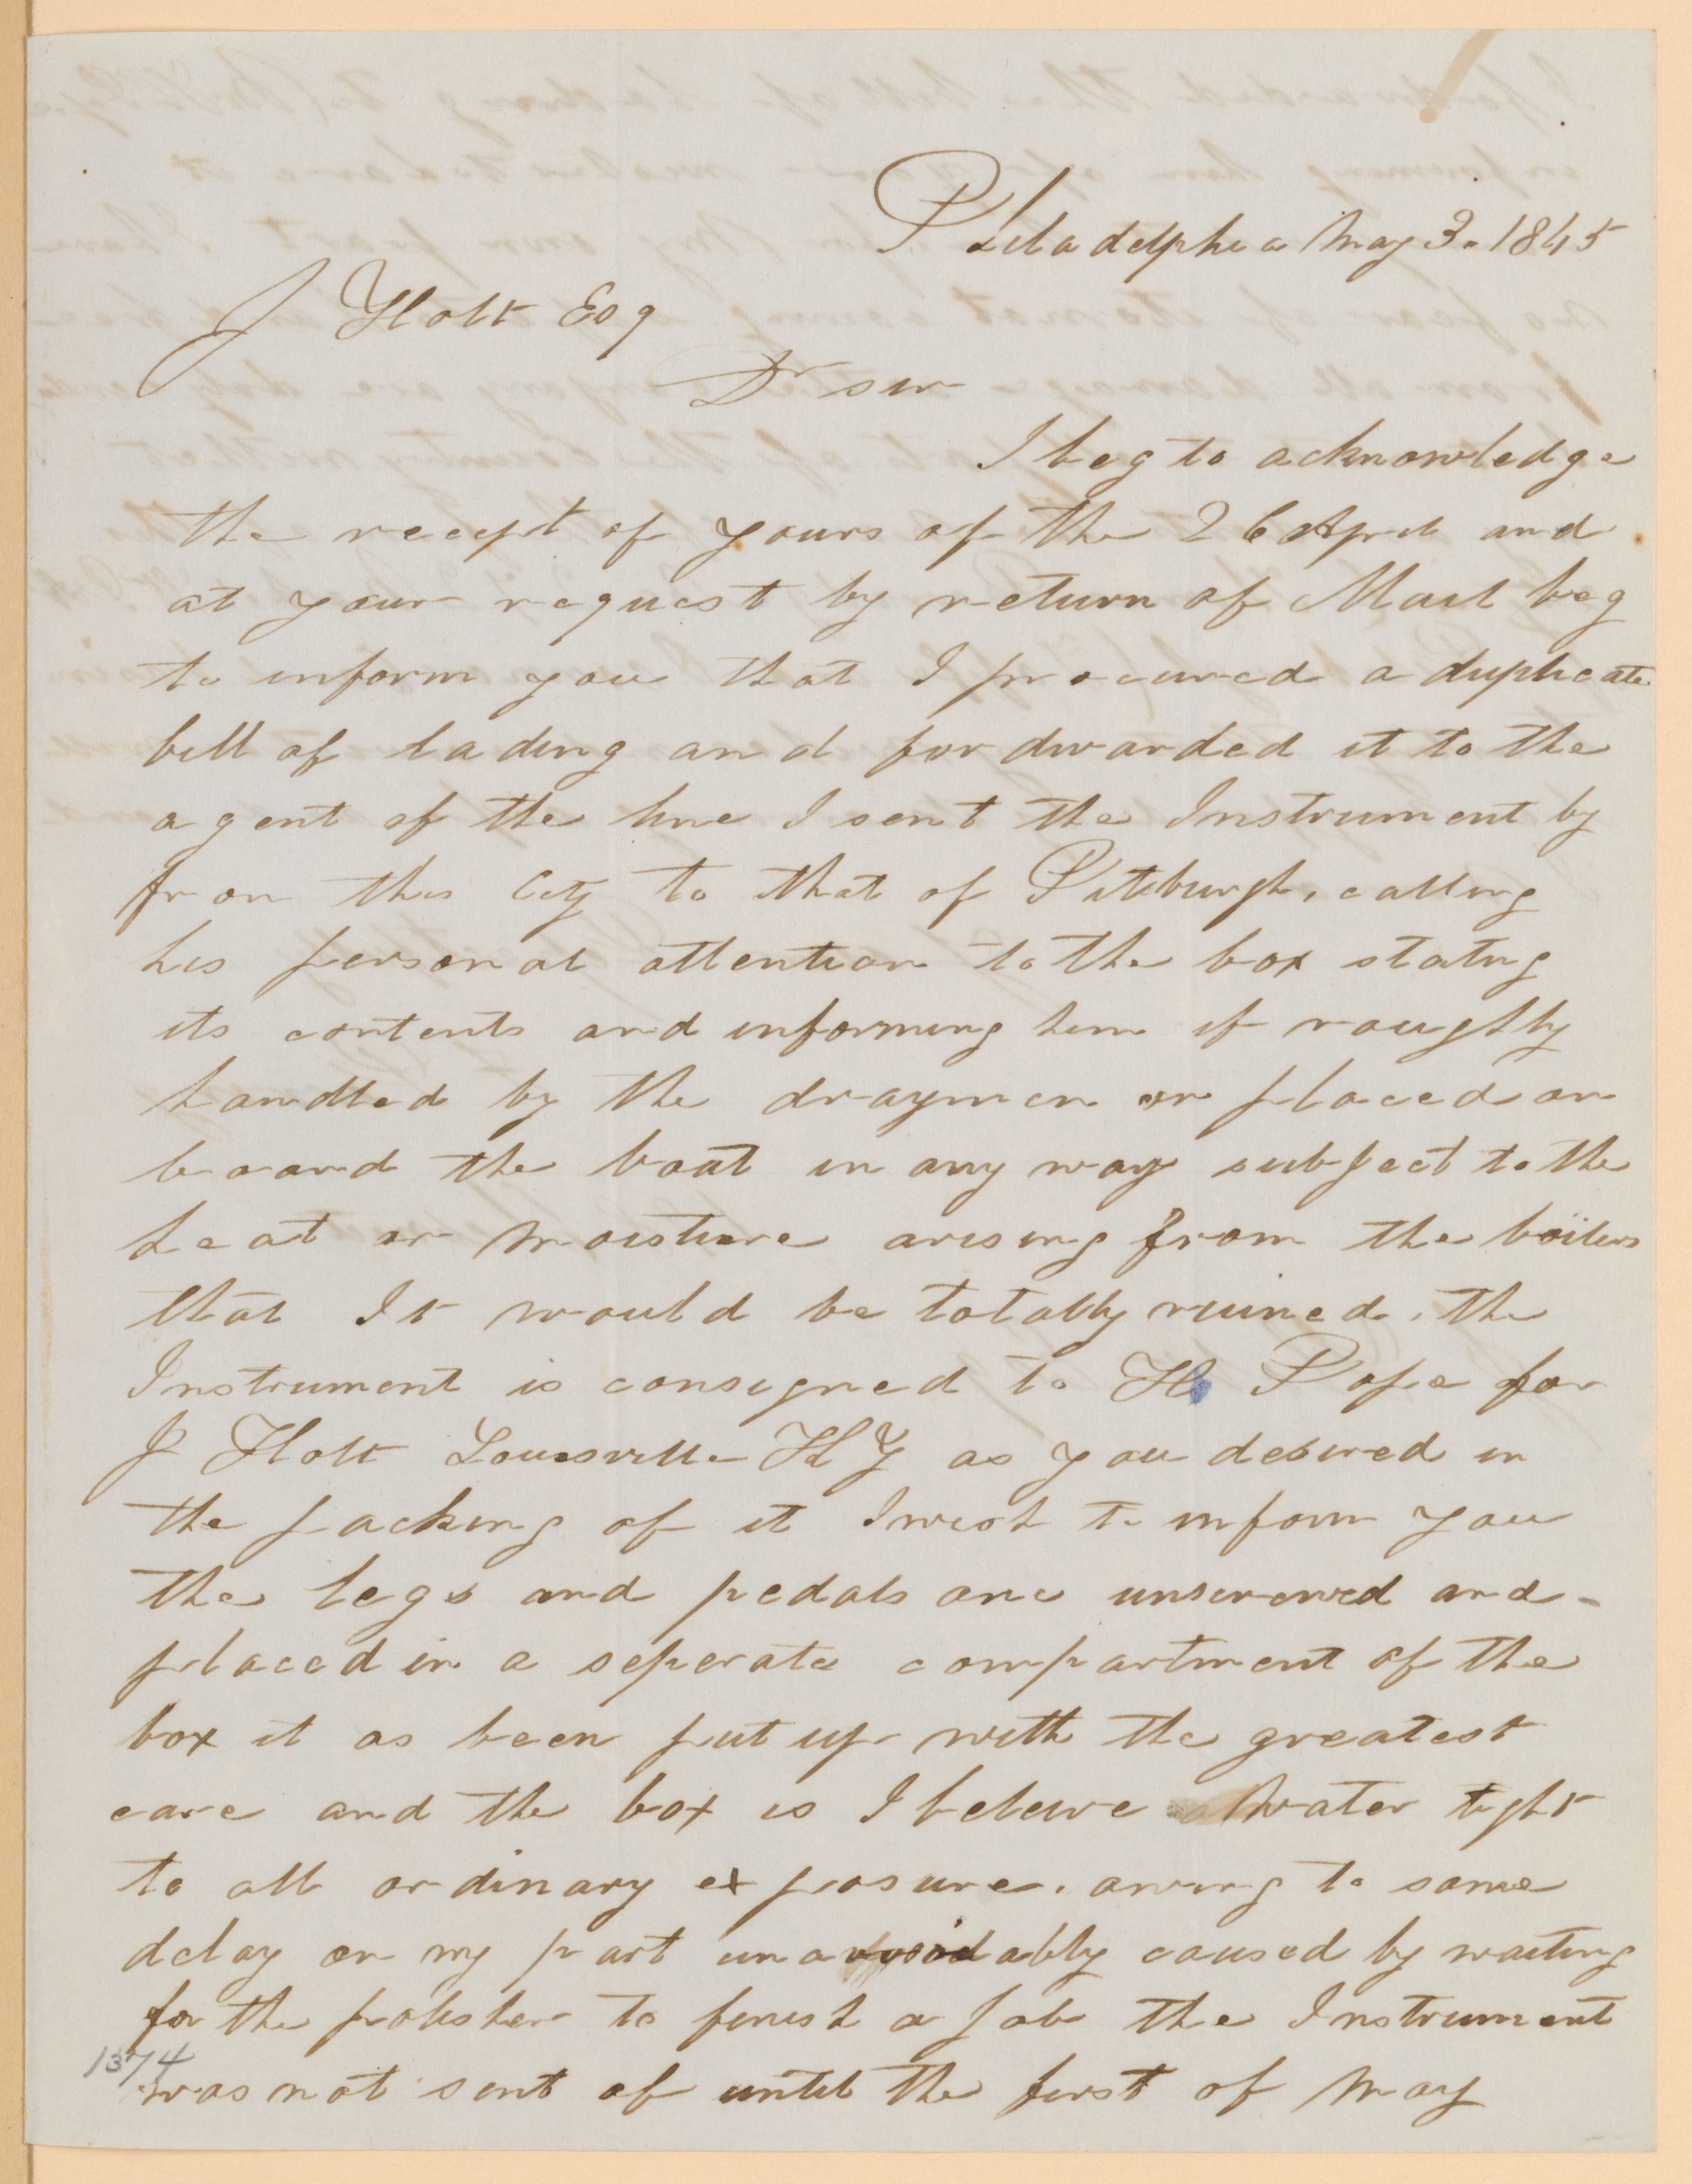 Philadelphia May 3. 1845
J Holt Esq
Dr sir
I beg to acknowledge
the recept of yours of the 26 April and
at your request by return of Mail beg
to inform you that I procured a duplicate
bill of lading and fordwarded it to the
agent of the line I sent the Instrument by
from this City to that of Pitsburgh, calling
his personal attention to the box stating
its contents and informing him if roughly
handled by the draymen or placed on
board the boat in any way subject to the
heat or moisture arising from the boilers
that It would be totally ruined. the
Instrument is consigned to H Pope for
J Holt Louisville KY as you desired in
the packing of it I wish to inform you
the legs and pedals are unscrewed and
placed in a seperate compartment of the
box it as been put up with the greatest
care and the box is I beleive water tight
to all ordinary exposure. owing to some
delay on my part unavoidably caused by waiting
for the polisher to finish a job the Instrument
was not sent of until the first of May
1374